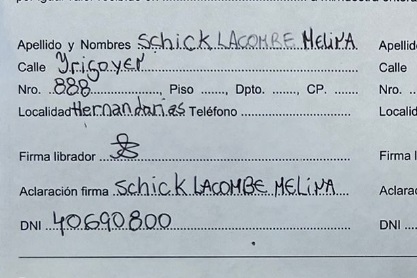 Apellido y Nombres Schick LACOMBE MELINA Apellid
Calle Yrigoyen Calle
Nro. 888, Piso ......, Dpto. ......, CP. ...... Nro. ..
Localidad Hernandarias Teléfono .............................. Localid
Firma librador Firma l
Aclaración firma Schick LACOMBE MELINA Aclarac
DNI 40690800 DNI ....